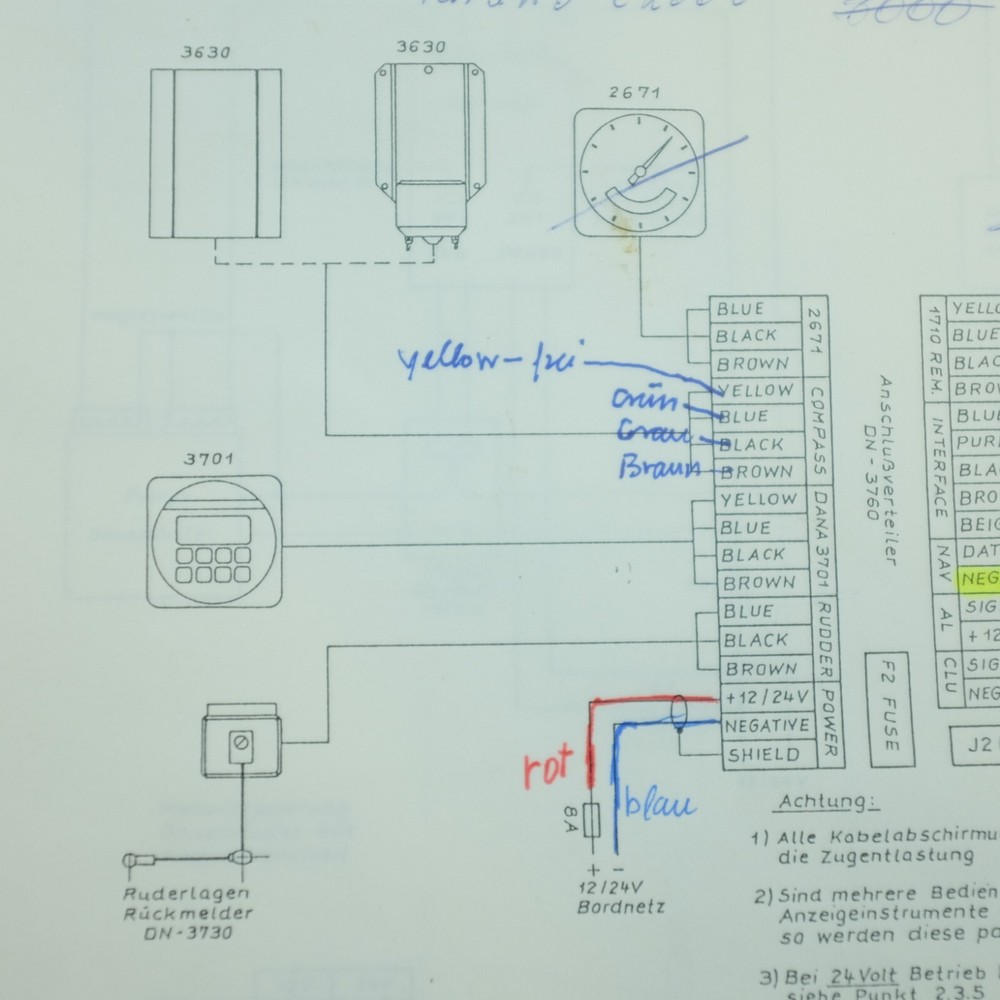 3630
3630
2671
BLUE
BLACK
BROWN
2671
yellow - frei
YELLOW
Grün
BLUE
Grau
BLACK
Braun
BROWN
COMPASS
3701
YELLOW
BLUE
BLACK
BROWN
DANA 3701
BLUE
BLACK
BROWN
RUDDER
+12/24V
NEGATIVE
SHIELD
POWER
rot
blau
8A
+ -
12/24V
Bordnetz
Ruderlagen
Rückmelder
DN-3730
Anschlußverteiler
DN-3760
F2 FUSE
1710 REM.
INTERFACE
NAV
AL
CLU
YELLO
BLUE
BLAC
BROW
BLUE
PUR
BLA
BRO
BEIG
DAT
NEG
SIG
+12
SIG
NEG
J2
Achtung:
1) Alle Kabelabschirmu
die Zugentlastung
2) Sind mehrere Bedien
Anzeigeinstrumente
so werden diese pa
3) Bei 24Volt Betrieb
siehe Punkt 2.3.5